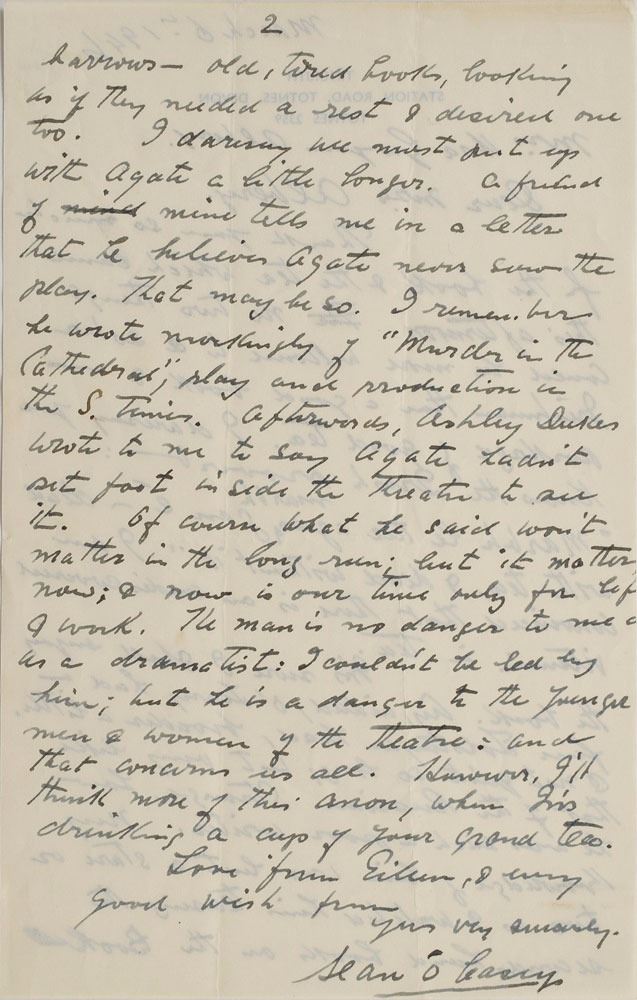 2
barrows — old, tired books, looking
as if they needed a rest & desired one
too. I daresay we must put up
with Agate a little longer. A friend
of mind mine tells me in a letter
that he believes Agate never saw the
play. That may be so. I remember
he wrote mockingly of "Murder in the
Cathedral", play and production in
the S. Times. Afterwords, Ashley Dukes
wrote to me to say Agate hadn't
set foot inside the theatre to see
it. Of course what he said won't
matter in the long run; but it matter
now; & now is our time only for lif
& work. The man is no danger to me
as a dramatist: I couldn't be led by
him; but he is a danger to the younger
men & women of the theatre: and
that concerns us all. However, I'll
think more of this anon, when I'm
drinking a cup of your grand tea.
Love from Eileen, & every
good wish from
yours very sincerely.
Sean O'Casey